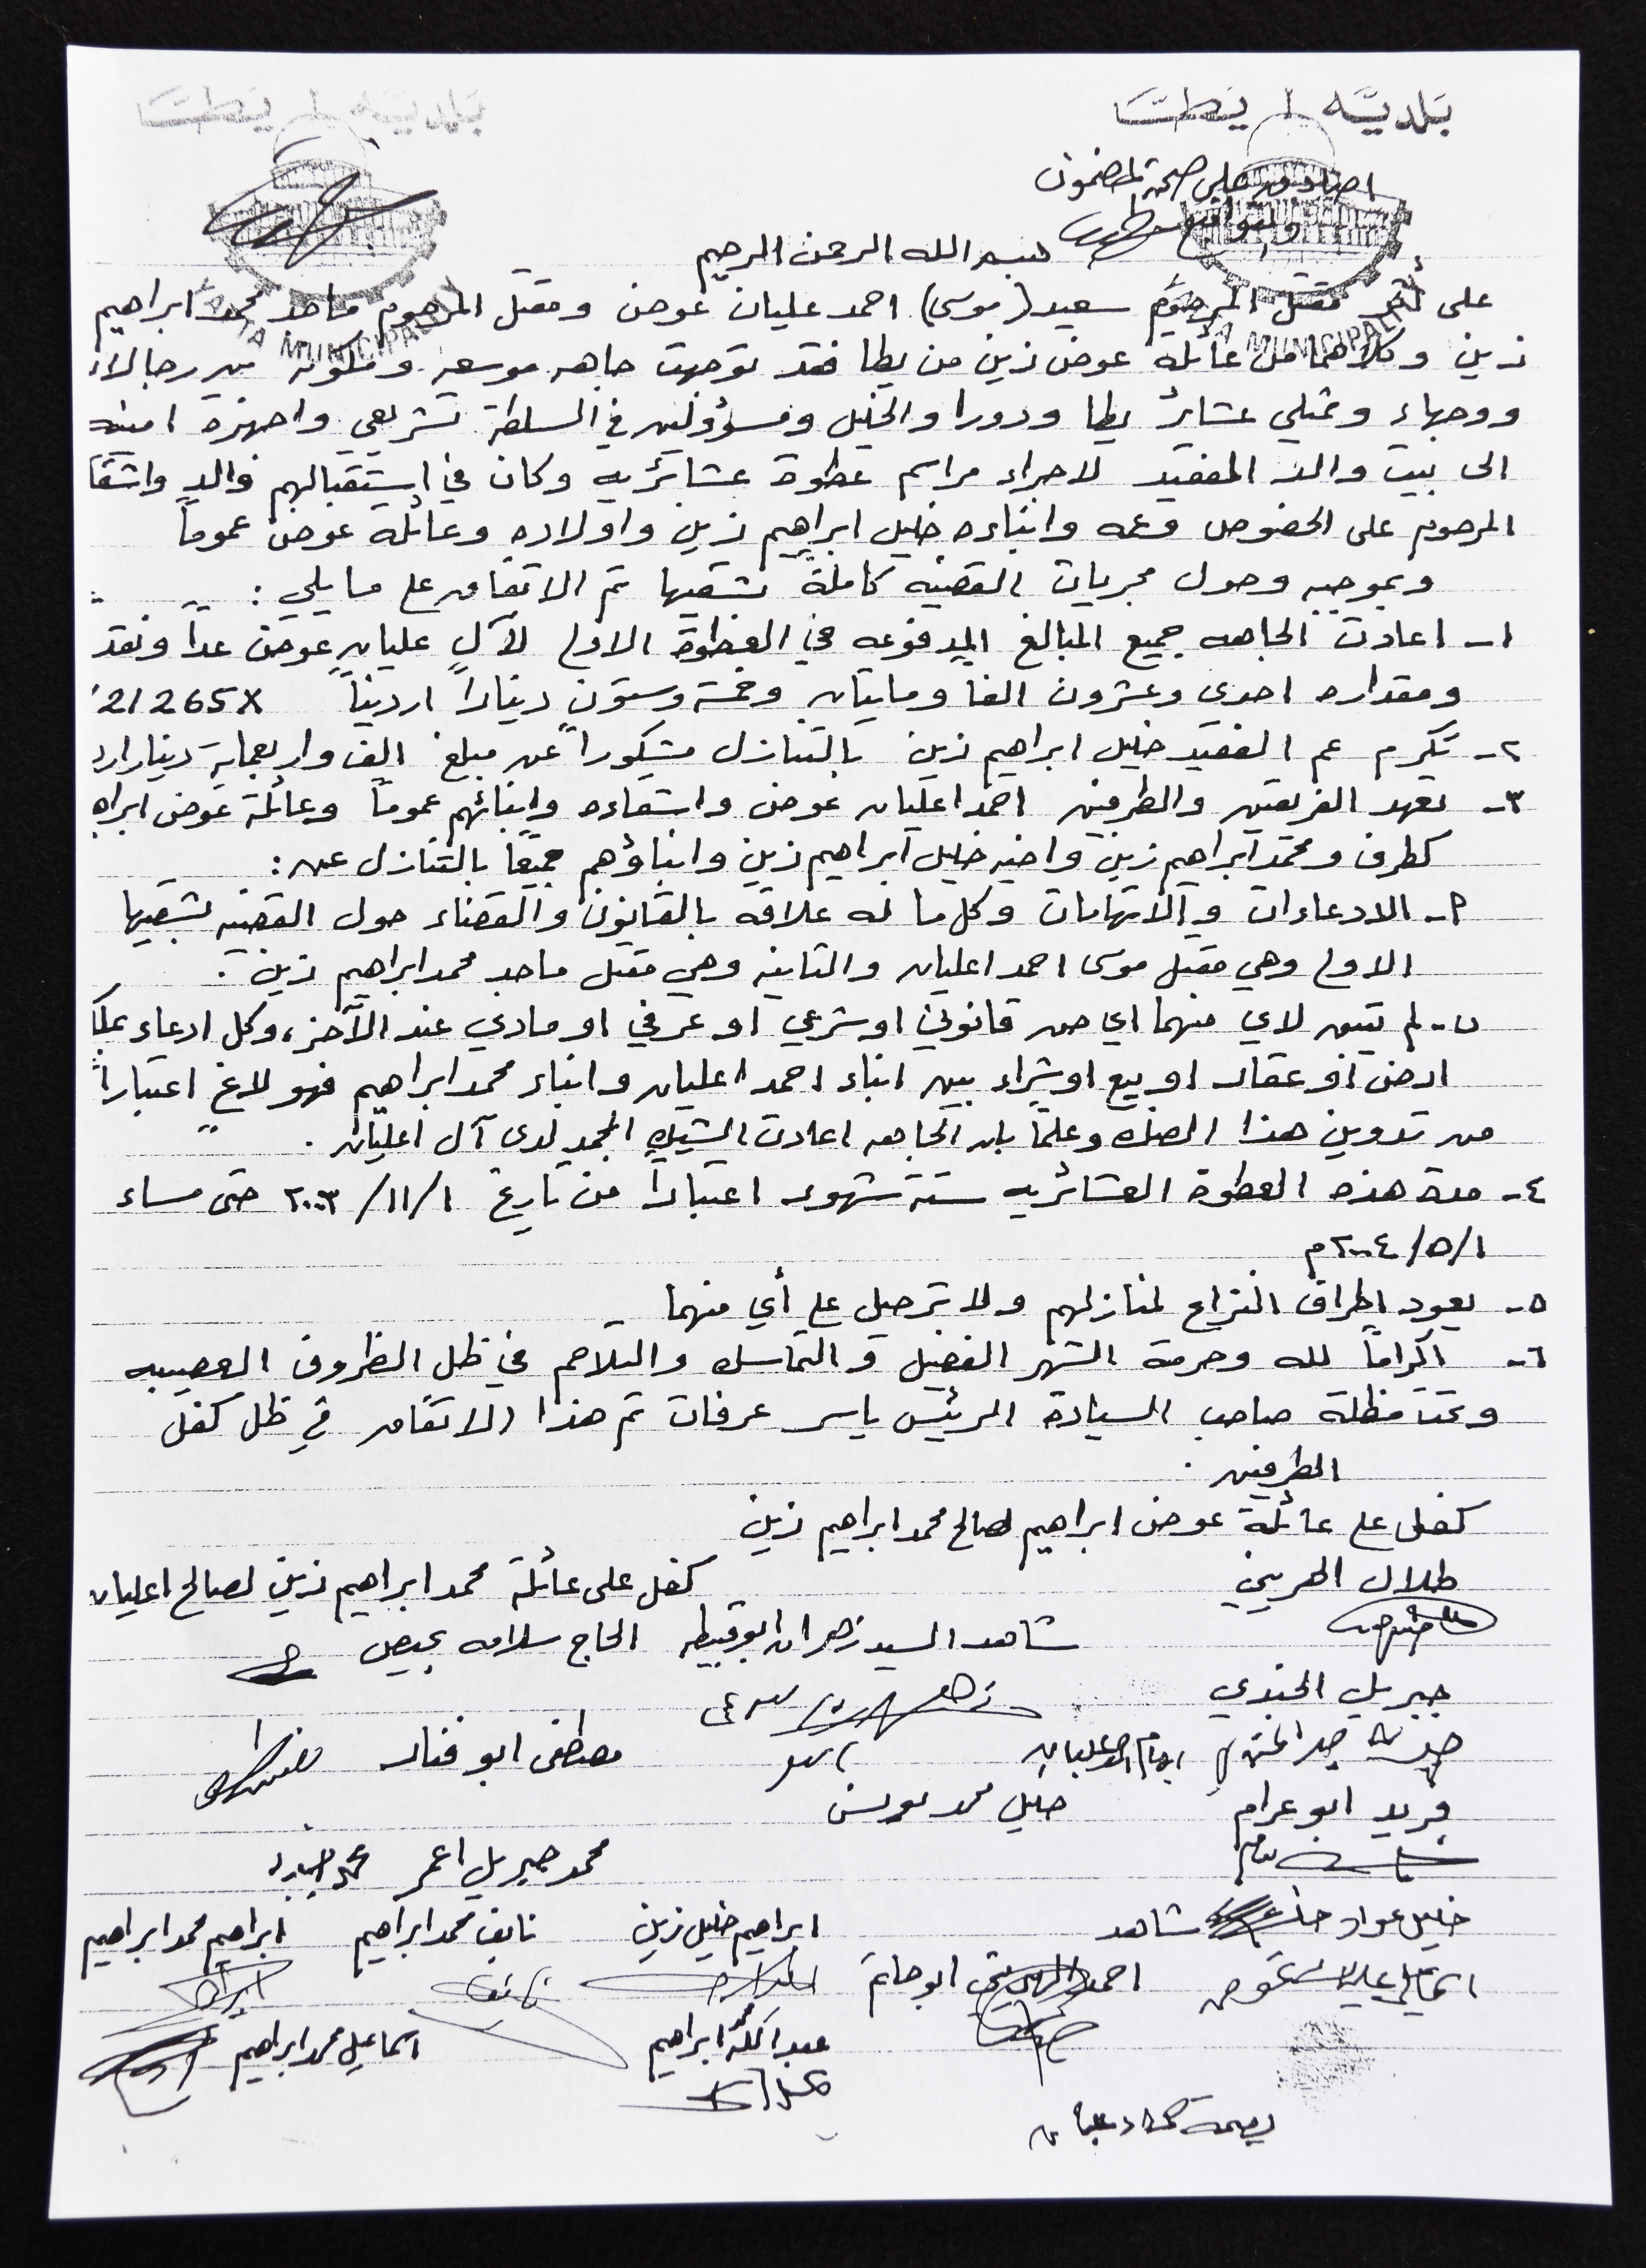 بلدية يطا
بلدية يطا
YATTA MUNICIPALITY
اصادق على صحة المضمون
والتواقيع
بسم الله الرحمن الرحيم
على أثر مقتل المرحوم سعيد (موسى) احمد عليان عوض ومقتل المرحوم ماجد محمد ابراهيم
زين وكلاهما من عائلة عوض زين من يطا فقد توجهت جاهه موسعه ومكونه من رجالات
ووجهاء وممثلي عشائر يطا ودورا والخليل ومسؤولين في السلطة تشريعي واجهزة امنيه
الى بيت والد الفقيد لاجراء مراسم عطوة عشائريه وكان في استقبالهم والد واشقا
المرحوم على الخصوص وعمه وابناءه خليل ابراهيم زين واولاده وعائلة عوض عموماً
وبموجبه وحول مجريات القضيه كاملة بشقيها تم الاتفاق على ما يلي :
١- اعادت الجاهه جميع المبالغ المدفوعه في العطوة الاولى لآل عليان عوض عداً ونقد
ومقداره احدى وعشرون الفا ومايتان وخمسة وستون ديناراً اردنياً 21265
٢- تكرم عم الفقيد خليل ابراهيم زين بالتنازل مشكوراً عن مبلغ الف واربعماية دينار ارد
٣- تعهد الفريقين والطرفين احمد اعليان عوض واشقاءه وابنائهم عموماً وعائلة عوض ابراه
كطرف ومحمد ابراهيم زين واخيه خليل ابراهيم زين وابناؤهم جميعاً بالتنازل عن :
أ- الادعاءات والاتهامات وكل ما له علاقه بالقانون والقضاء حول القضيه بشقيها
الاولى وهي مقتل موسى احمد اعليان والثانيه وهي مقتل ماجد محمد ابراهيم زين .
ب- لم يتبق لاي منهما اي حق قانوني او شرعي او عرفي او مادي عند الآخر، وكل ادعاء بملك
ارض او عقار او بيع او شراء بين ابناء احمد اعليان وابناء محمد ابراهيم فهو لاغٍ اعتباراً
من تدوين هذا الصك وعلماً بان الجاهه اعادت الشيك المجمد لدى آل اعليان .
٤- مدة هذه العطوة العشائريه ستة شهور اعتباراً من تاريخ ١/١١/٢٠٠٣ حتى مساء
١/٥/٢٠٠٤م
٥- يعود اطراف النزاع لمنازلهم ولا ترحيل على أي منهما
٦- اكراماً لله وحرمة الشهر الفضيل والتماسك والتلاحم في ظل الظروف العصيبه
وتحت مظلة صاحب السيادة الرئيس ياسر عرفات تم هذا الاتفاق في ظل كفل
الطرفين .
كفل على عائلة عوض ابراهيم لصالح محمد ابراهيم زين
طلال الهريني كفل على عائلة محمد ابراهيم زين لصالح اعليان
شاهد السيد زهران ابو قبيطه الحاج سلامه بحيص
جبريل الجندي
مصطفى ابو فنار
فريد ابو عرام خليل محمد
محمد جبريل اعمر
خليل عواد شاهد ابراهيم خليل زين نايف محمد ابراهيم ابراهيم محمد ابراهيم
احمد ابو حاتم
عبد الله محمد ابراهيم اسماعيل محمد ابراهيم